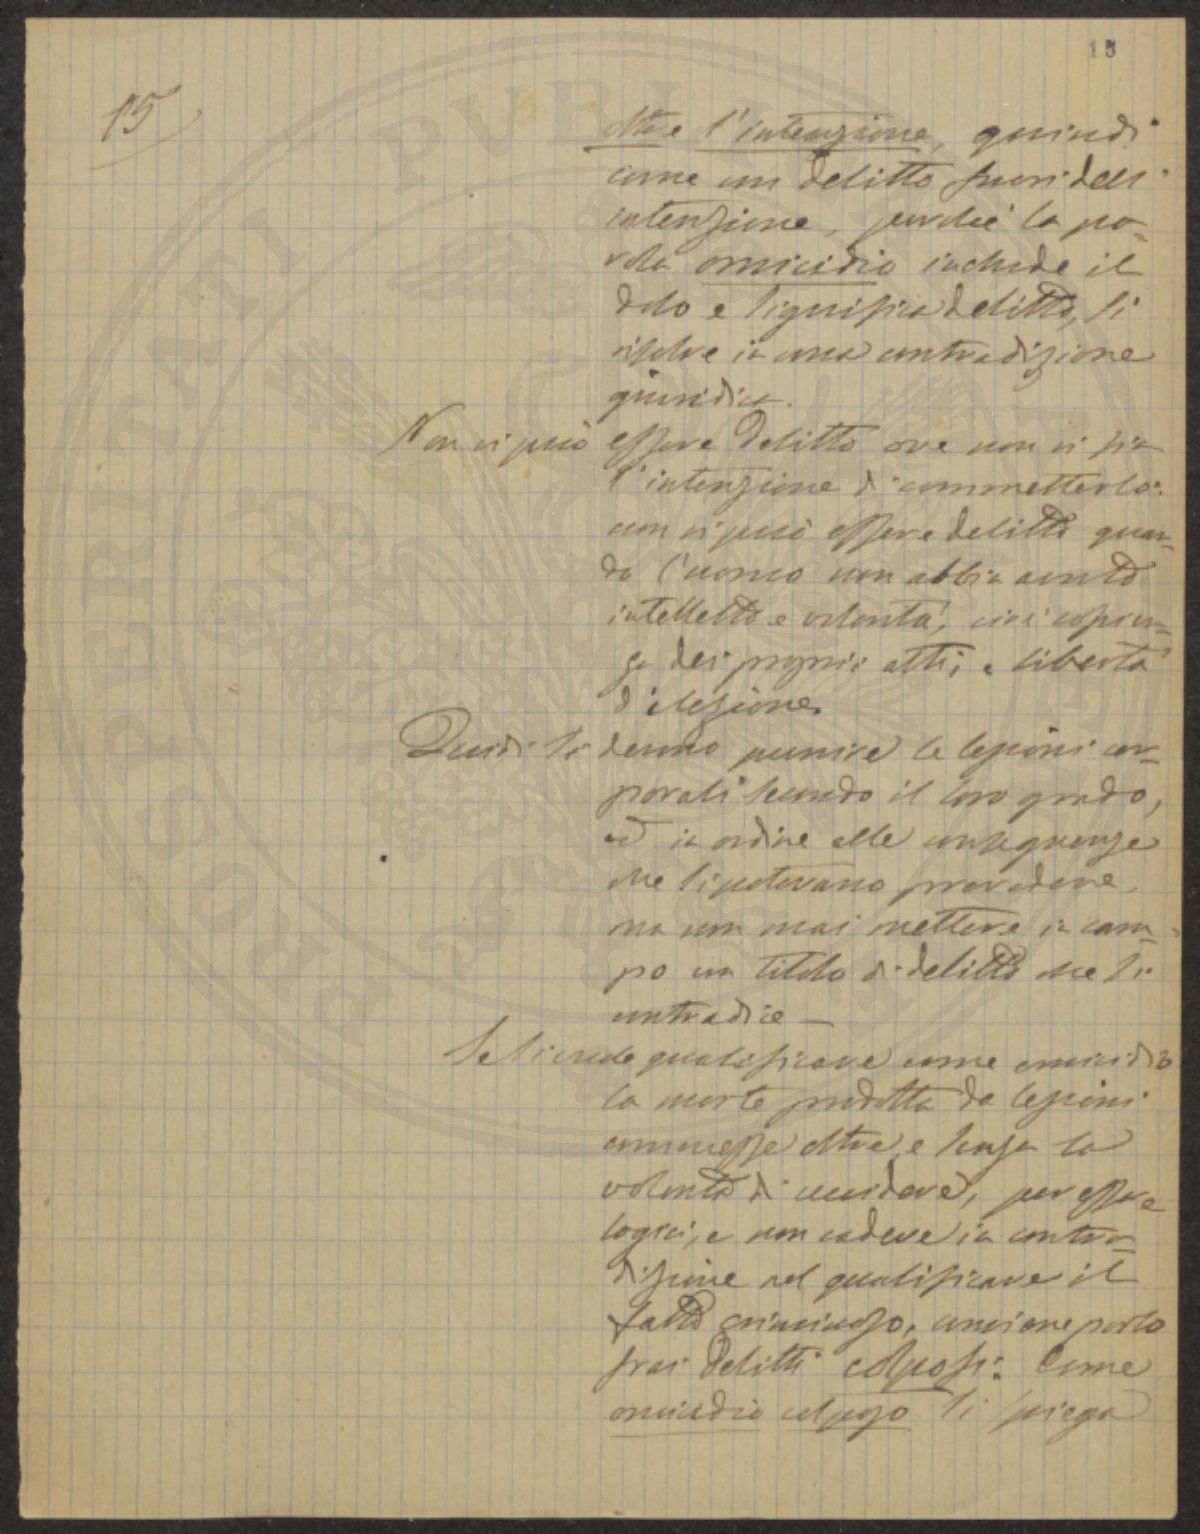 15
15
oltre l'intenzione, quindi
come un delitto fuori dell'
intenzione, perché la pa-
rola omicidio inchude il
dolo e significa delitto, si
risolve in una contradizione
giuridica.
Non vi può essere delitto ove non vi sia
l'intenzione di commetterlo:
non vi può essere delitto quan-
do l'uomo non abbia avuto
intelletto e volontà, cioè coscien-
za dei proprii atti, e libertà
d'elezione.
Quindi si denno punire le lesioni cor-
porali secundo il loro grado,
ed in ordine alle conseguenze
che si potevano prevedere,
ma non mai mettere in cam-
po un titolo di delitto che si
contradice —
Se si crede qualificare come omicidio
la morte prodotta da lesioni
commesse oltre, e senza la
volontà di uccidere, per essere
logici, e non cadere in contra-
dizione nel qualificare il
fatto criminoso, conviene porlo
frai delitti colposi: Come
omicidio colposo si spiega